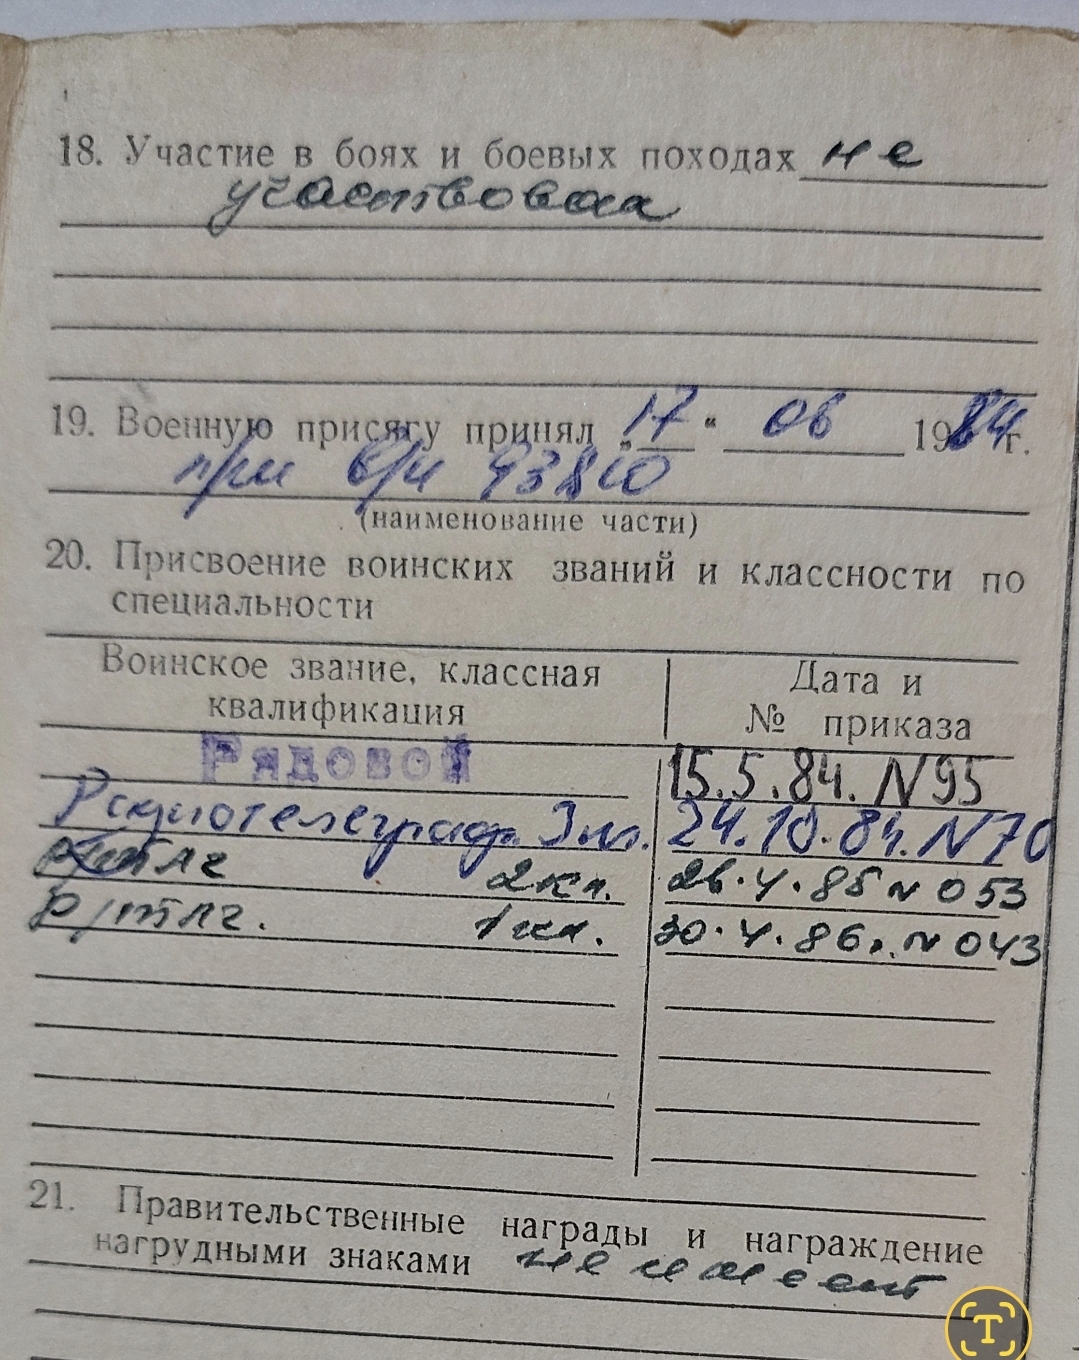 18. Участие в боях и боевых походах не
участвовал
19. Военную присягу принял „17“ 06 1984г.
при в/ч 93810
(наименование части)
20. Присвоение воинских званий и классности по
специальности
Воинское звание, классная
квалификация
Дата и
№ приказа
Рядовой 15.5.84. N95
Радиотелеграф. 3 кл. 24.10.84. N70
тлг 2 кл. 26.4.85 N 053
р/тлг. 1 кл. 30.4.86г. N 043
21. Правительственные награды и награждение
нагрудными знаками не имеет
T